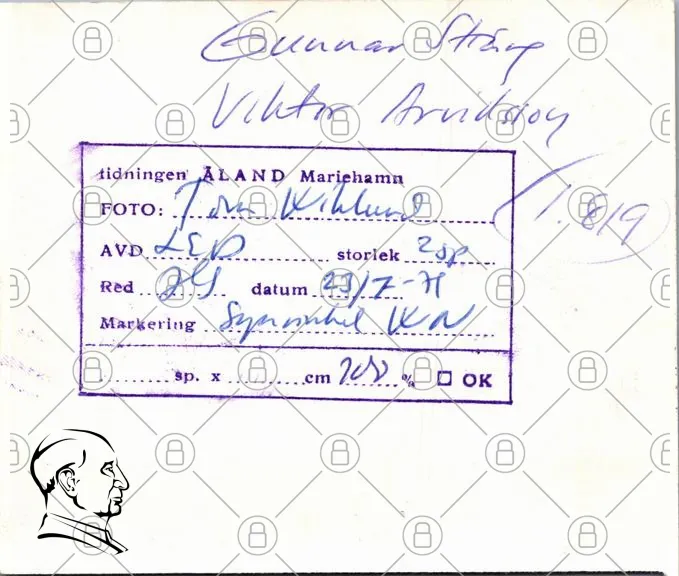 Gunnar Sträng
Viktor Arvidsson
tidningen ÅLAND Mariehamn
FOTO: Tom Wiklund
1.819
AVD LED storlek 2sp
Red datum 23/7-71
Markering WN
sp. x cm 100 % ☐ OK